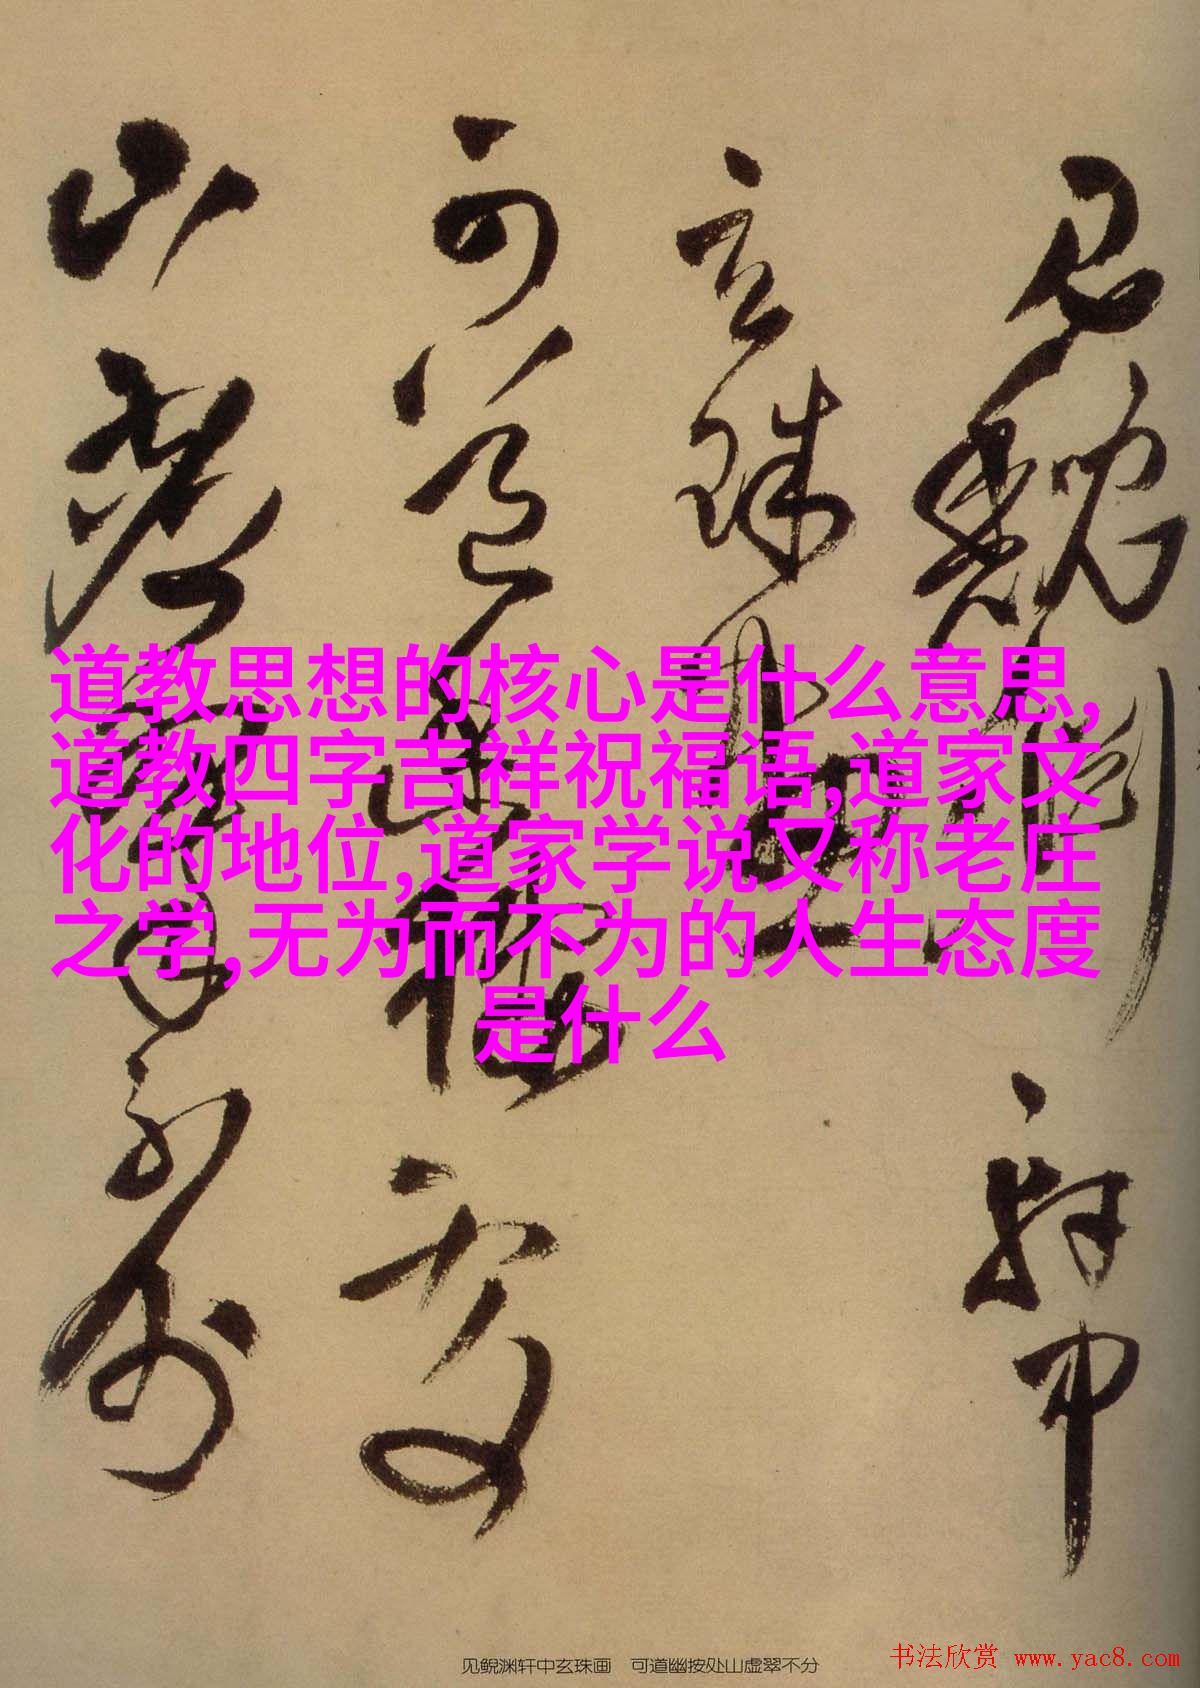 见 轩中
玄珠
可道
山
道教思想的核心是什么意思,
道教四字吉祥祝福语,道家文
化的地位,道家学说又称老庄
之学,无为而不为的人生态度
是什么
见鲵渊轩中玄珠画 可道幽按处山虚翠不分
书法欣赏 www.yac8.com